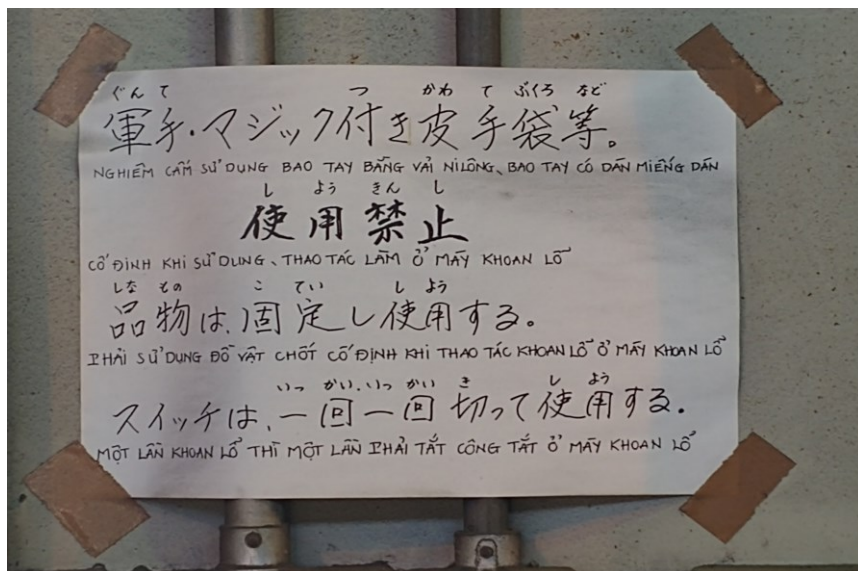 ぐんて つ かわ て ぶくろ など
軍手・マジック付き皮手袋等。
NGHIÊM CẤM SỬ DỤNG BAO TAY BẰNG VẢI NILÔNG, BAO TAY CÓ DÁN MIẾNG DÁN
し よう きん し
使用禁止
CỐ ĐỊNH KHI SỬ DỤNG, THAO TÁC LÀM Ở MÁY KHOAN LỖ
しな もの こ てい し よう
品物は、固定し使用する。
PHẢI SỬ DỤNG ĐỒ VẬT CHỐT CỐ ĐỊNH KHI THAO TÁC KHOAN LỖ Ở MÁY KHOAN LỖ
いっ かい、いっ かい き し よう
スイッチは、一回一回切って使用する。
MỘT LẦN KHOAN LỖ THÌ MỘT LẦN PHẢI TẮT CÔNG TẮT Ở MÁY KHOAN LỖ